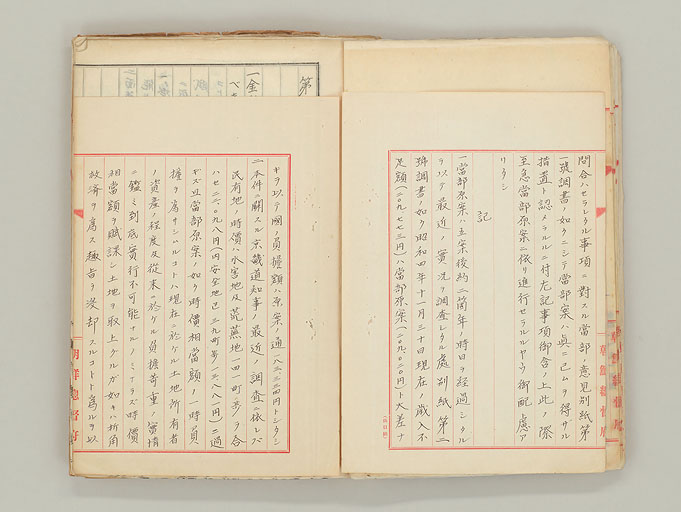 問合ハセラレタル事項ニ對スル當部ノ意見別紙第
一號調書ノ如クニシテ當部案ハ眞ニ已ムヲ得ザル
措置ト認メラルルニ付左記事項御含ノ上此ノ際
至急當部原案ニ依リ進行セラルルヤウ御配慮ア
リタシ
記
一當部原案ハ立案後約二箇年ノ時日ヲ經過シタル
ヲ以テ最近ノ實況ヲ調査シタル處別紙第二
號調書ノ如ク昭和四年十一月三十日現在ノ歳入不
足額(二〇九、七七三円)ハ當部原案(二〇九、〇二〇円)ト大差ナ
朝鮮總督府
第
一金
キヲ以テ國ノ負擔額ハ原案ノ通(八三、二二四円)トシタシ
二本件ニ關スル京畿道知事ノ最近ノ調査ニ依レバ
民有地ノ時價ハ水害地及荒蕪地一四町歩ヲ合
ハセ 〇九八円(内安全地 二九町歩 八八一円)ニ過
ギズ且當部原案ノ如ク時價相當額ノ一時負
擔ヲ為サシムルコトハ現在ニ於ケル土地所有者
ノ資産ノ程度及從来ニ於ケル負擔苛重ノ實情
ニ鑑ミ到底實行不可能ナルノミナラズ時價
相當額ヲ賦課シ土地ヲ取上グルガ如キハ折角
救済ヲ為ス趣旨ヲ沒却スルコトト為ルヲ以
朝鮮總督府